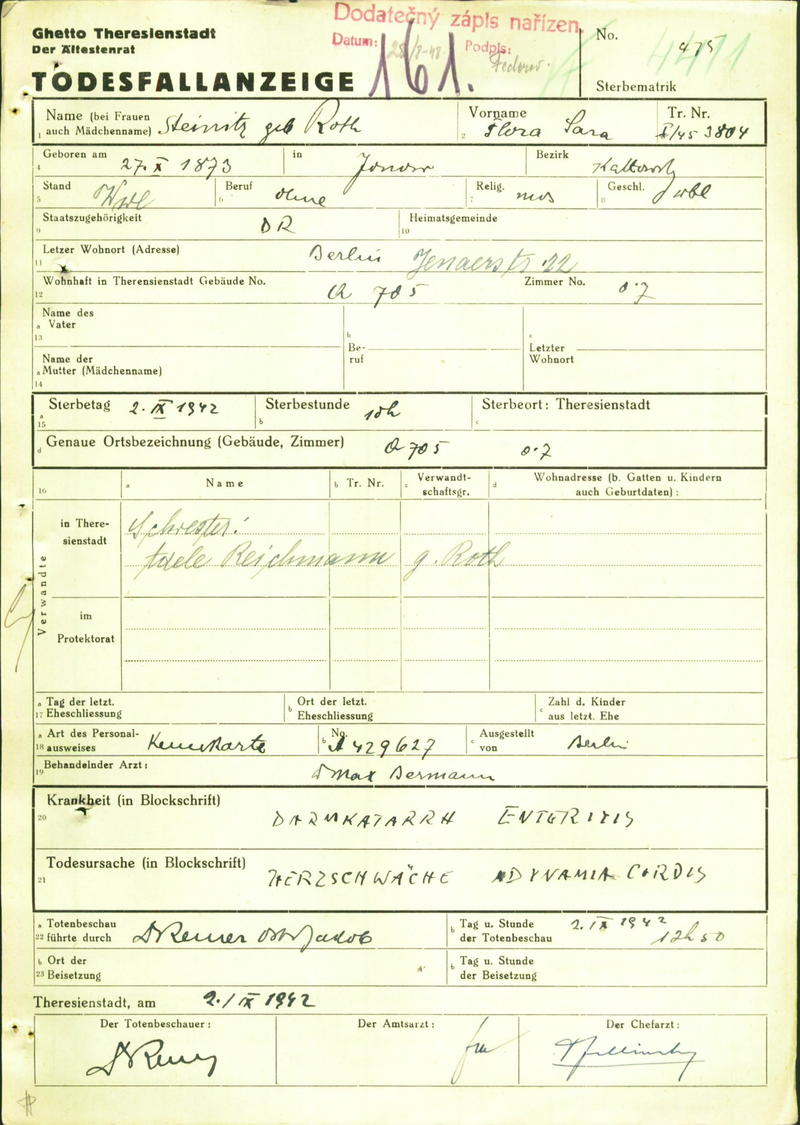 Dodatečný zápis nařízen
Datum: Podpis:
161.
Ghetto Theresienstadt
Der Ältestenrat
TODESFALLANZEIGE
No. 475
4411
Sterbematrik
Name (bei Frauen auch Mädchenname) Steinitz geb Roth
1
Vorname Flora Sara
2
Tr. Nr. I/45 3804
Geboren am 27. X 1873
4
in Janow
Bezirk Kattowitz
Stand
5
Beruf ohne
6
Relig. mos
7
Geschl. wbl
8
Staatszugehörigkeit DR
9
Heimatsgemeinde
10
Letzer Wohnort (Adresse) Berlin Jenaerstr. 22
11
Wohnhaft in Therensienstadt Gebäude No. Q 705
12
Zimmer No. 07
Name des
a Vater
13
b
Be-
ruf
c
Letzter
Wohnort
Name der
a Mutter (Mädchenname)
14
a Sterbetag 2. IX 1942
15
Sterbestunde 10h
b
Sterbeort: Theresienstadt
c
d Genaue Ortsbezeichnung (Gebäude, Zimmer) Q 705 07
16
a Name
b Tr. Nr.
c Verwandt-
schaftsgr.
d Wohnadresse (b. Gatten u. Kindern
auch Geburtdaten) :
Verwandte
in There-
sienstadt
Schwester:
Adele Reichmann g. Roth
im
Protektorat
a Tag der letzt.
17 Eheschliessung
b Ort der letzt.
Eheschliessung
c Zahl d. Kinder
aus letzt. Ehe
a Art des Personal-
18 ausweises Kennkarte
b No. A 429627
c Ausgestellt
von Berlin
19 Behandelnder Arzt: Dr Max Bermann
Krankheit (in Blockschrift) DARMKATARRH ENTERITIS
20
Todesursache (in Blockschrift) HERZSCHWÄCHE ADYNAMIA CORDIS
21
a Totenbeschau
22 führte durch
b Tag u. Stunde
der Totenbeschau 2. IX 1942
12h50
b Ort der
23 Beisetzung
b Tag u. Stunde
der Beisetzung
Theresienstadt, am 2. IX 1942
Der Totenbeschauer:
Der Amtsarzt:
Der Chefarzt: